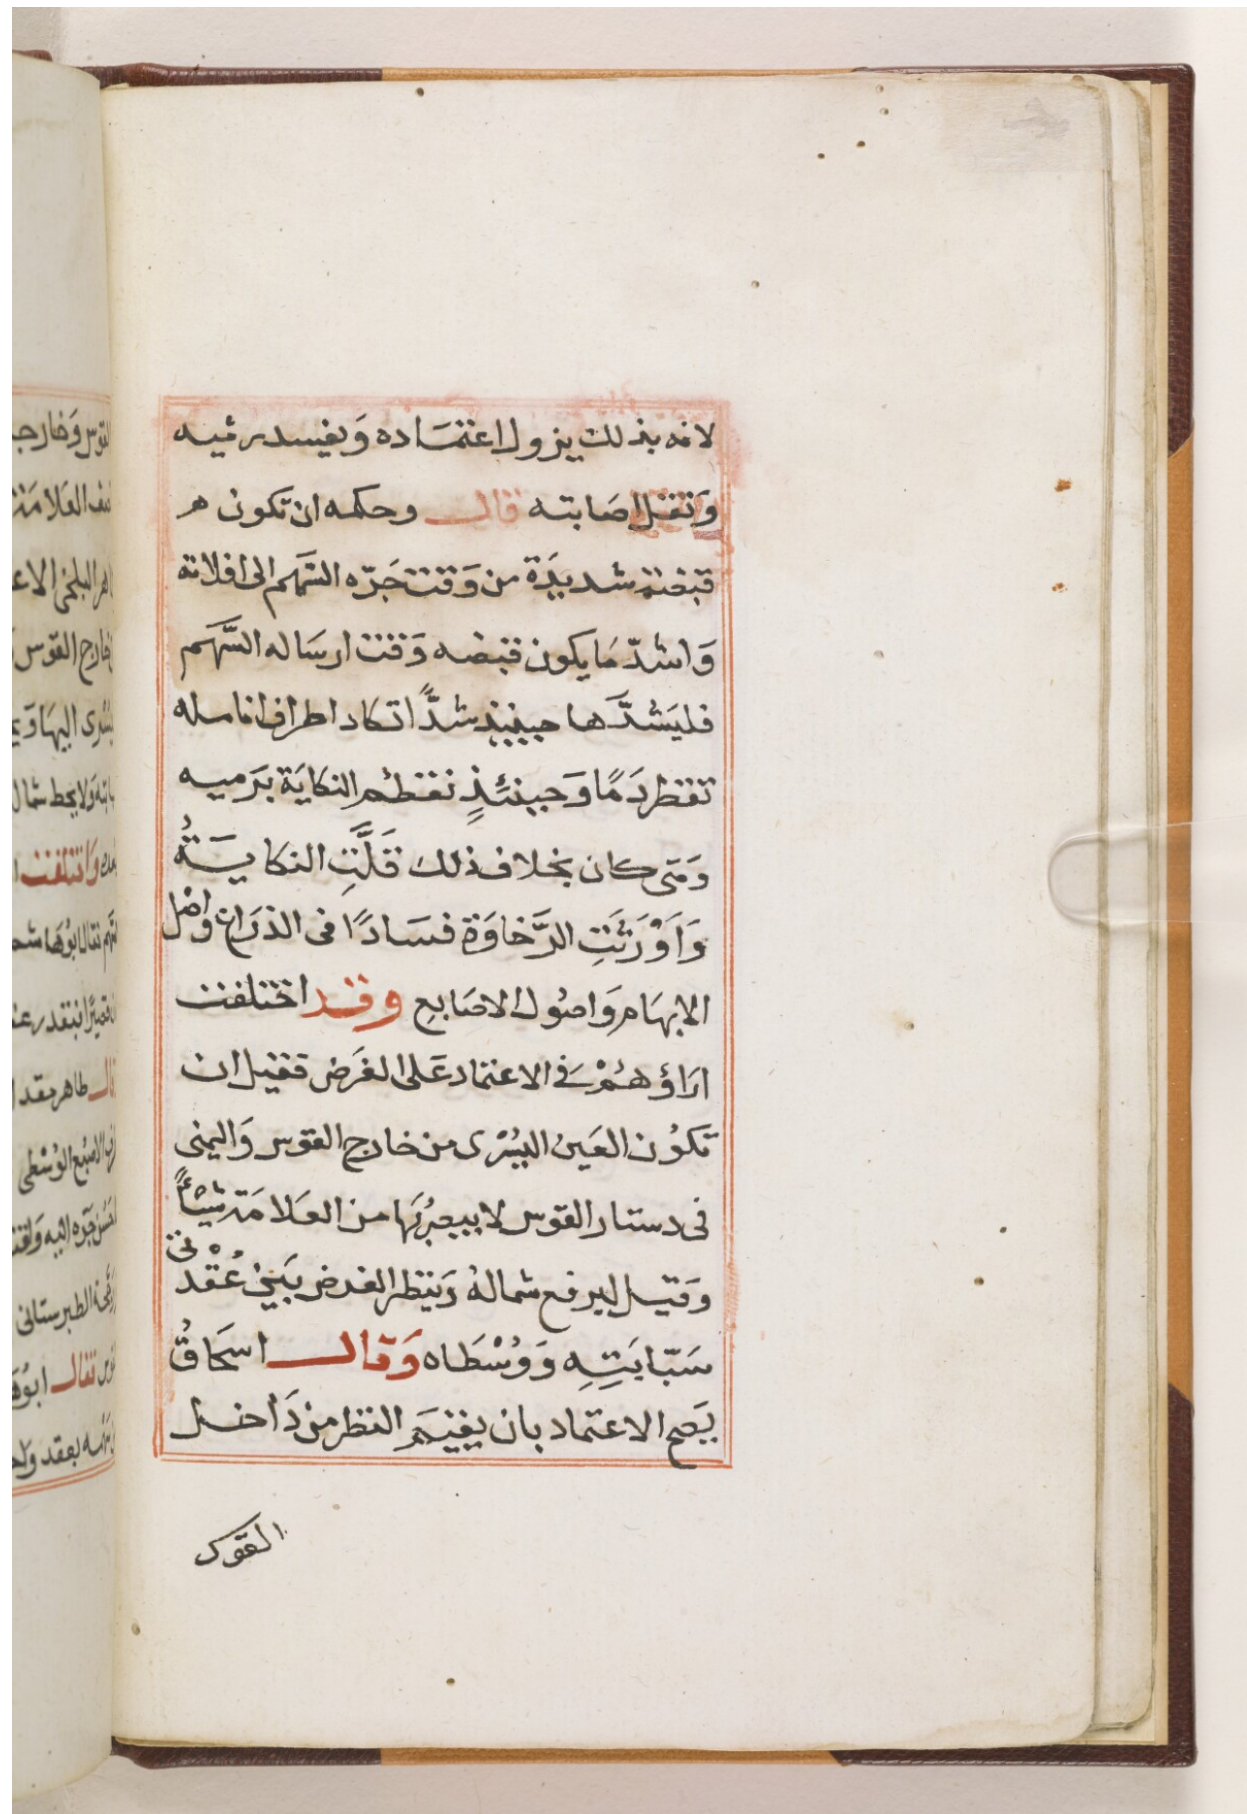 لانه بذلك يزول اعتماده وَيفسد رميه
وَتقل اصَابته قال وحكمه ان تكون
قبضته شديدَة من وَقت جَرّه السَّهم الى افلاته
وَاشدّ مَا يكون قبضه وَقت ارسَاله السَّهَم
فليَشدَّها حينئِذٍ شدًّا تكاد اطراف انامله
تقطر دَمًا وَحينئذٍ تعظم النكايَة بَرميه
وَمَتى كان بخلاف ذلك قَلَّتِ النكايَةُ
وَاَوْرَثَتِ الرَّخاوَة فسَادًا فى الذرَاع واصل
الابهَام وَاصُول الاصَابعِ وقد اختلفت
ارَاؤهُمْ فى الاعتماد عَلى الغرَض فقيل ان
تكوُن العَين اليُسْرى من خارج القوس وَاليمنى
فى دستار القوس لا يبصِرُ بَها من العَلامَة شيْئًا
وَقيل ليرفع شمالهُ وَينظر الغرض بَيْن عُقْدتى
سَبّابَتِهِ وَوُسْطَاه وَقال اسحَاقُ
يَصح الاعتماد بان يقيَم النظر من دَاخل
القوس
القوس وَخارج
العَلامَة
البلخى
خارج القوس
اليهَا
وَلا يحط شمال
وَاختلفت
فقال ابوُهَاشم
قال طاهر
الاصبُع الوُسْطى
جَرّه اليه
الطبرستانى
فقال ابوُ
بعقد